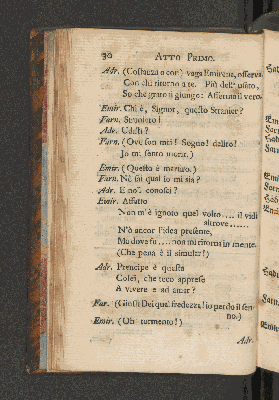 30 ATTO PRIMO.
Adr. (Costanza o cor) vaga Emirena, osserva
Con chi ritorno a te. Più dell' usato,
So che grato ti giungo: Afferma il vero.
Emir. Chi è, Signor, questo Stranier?
Farn. Straniero!
Adr. Udisti?
Farn. (Ove son mai! Sogno! deliro!
Io mi sento morir.)
Emir. (Questo è martiro.)
Farn. Nè sai qual io mi sia?
Adr. E nol conosci?
Emir. Affatto
Non m'è ignoto quel volto.... il vidi
altrove......
N'ò ancor l'idea presente,
Ma dove fu.... non mi ritorna in mente.
(Che pena è il simular!)
Adr. Prencipe è questa
Colei, che teco apprese
A vivere e ad amar?
Far. (Giusti Dei qual fredezza! io perdo il senno.)
Emir. (Oh tormento!)
Adr.